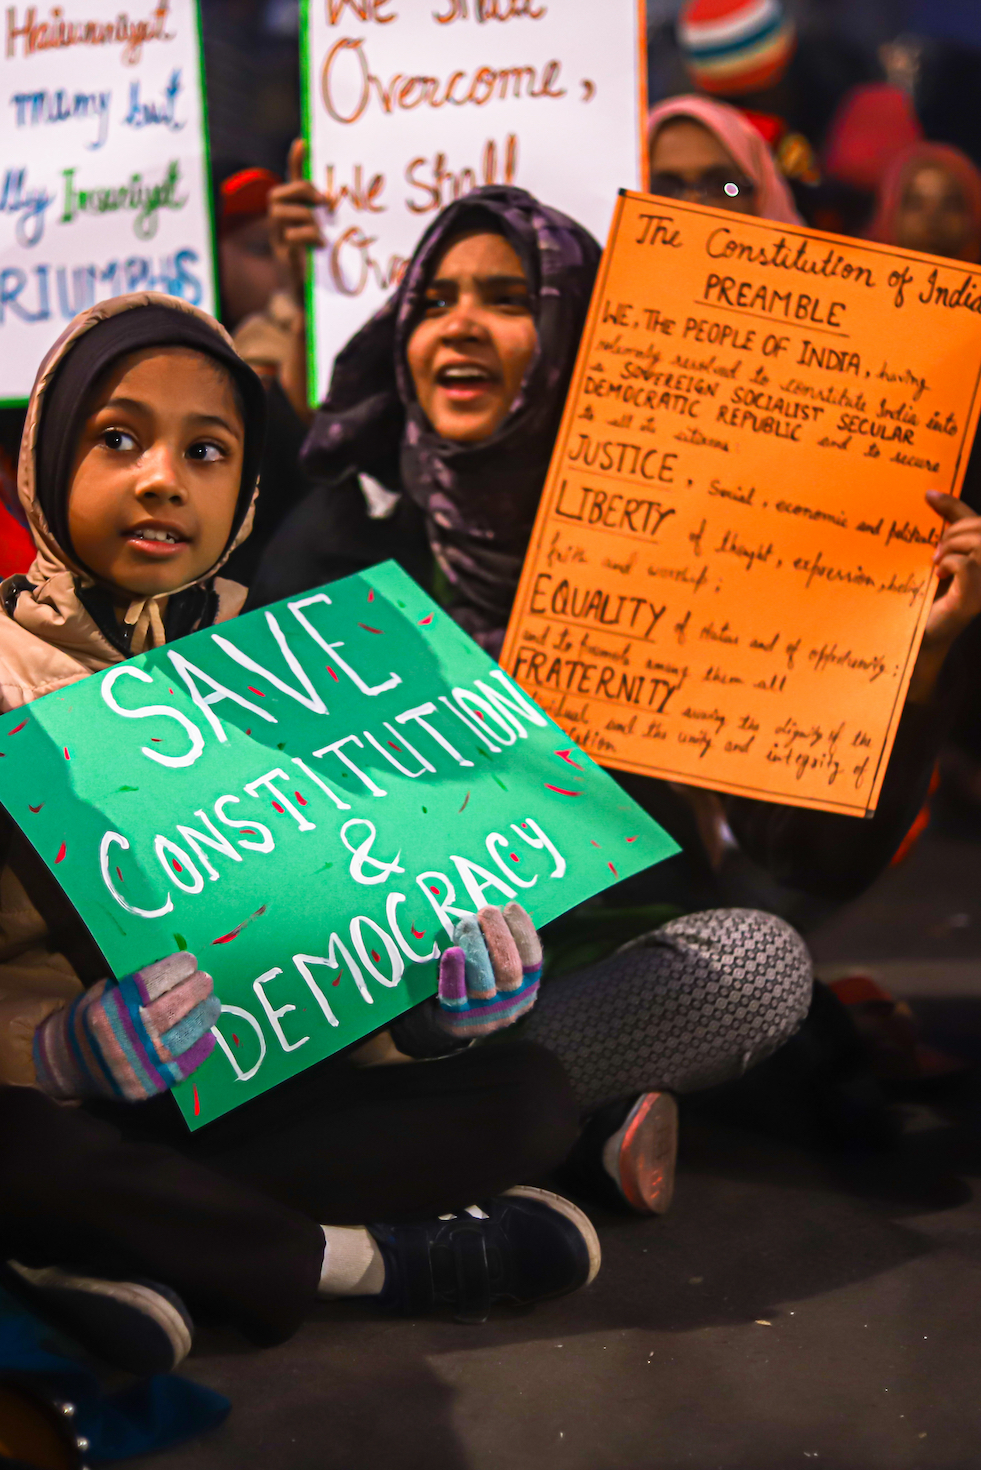 Haiwaniyat
many but
Insaniyat
RIUMPHS
We Shall
Overcome,
We Shall
SAVE
CONSTITUTION
&
DEMOCRACY
The Constitution of India
PREAMBLE
WE, THE PEOPLE OF INDIA, having
solemnly resolved to constitute India into
a SOVEREIGN SOCIALIST SECULAR
DEMOCRATIC REPUBLIC and to secure
to all its citizens:
JUSTICE, Social, economic and political;
LIBERTY of thought, expression, belief,
faith and worship;
EQUALITY of status and of opportunity;
and to promote among them all
FRATERNITY assuring the dignity of the
and the unity and integrity of